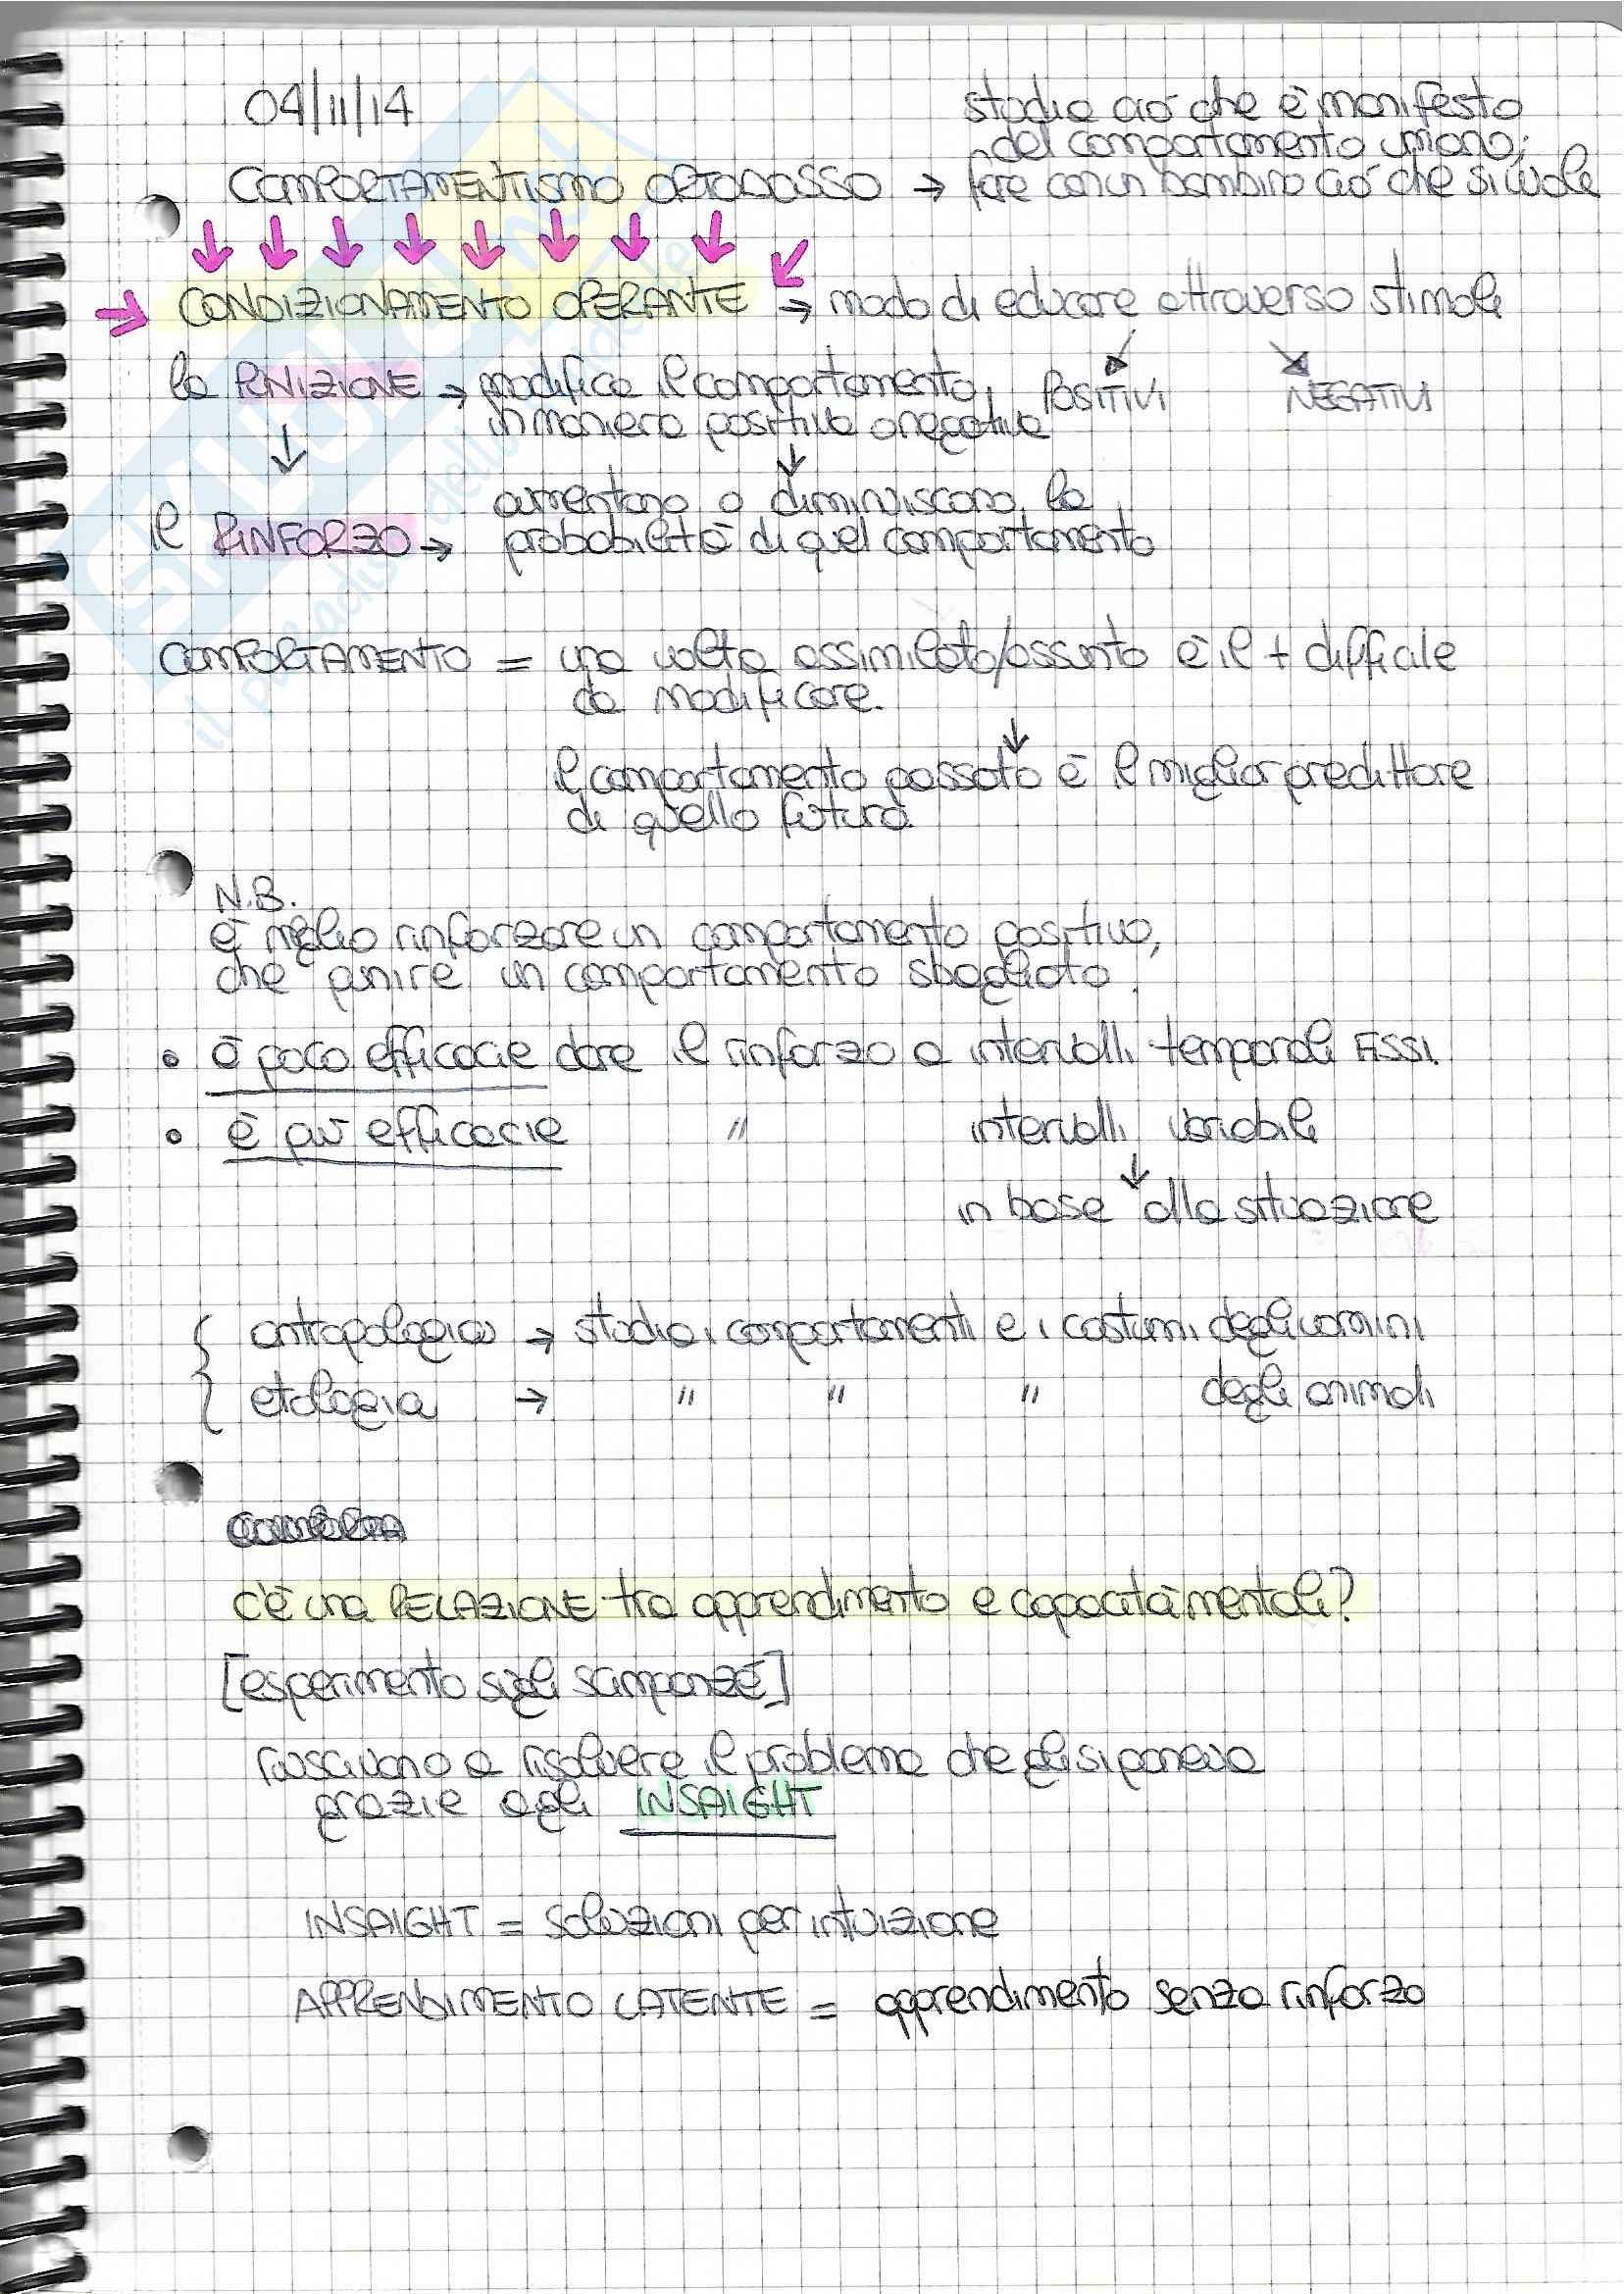 04/11/14
studia ciò che è manifesto
del comportamento umano;
COMPORTAMENTISMO ORTODOSSO → fare con un bambino ciò che si vuole
→ CONDIZIONAMENTO OPERANTE → modo di educare attraverso stimoli
POSITIVI NEGATIVI
la PUNIZIONE → modifica il comportamento
in maniera positiva o negativa
↓ ↓
aumentano o diminuiscono la
il RINFORZO → probabilità di quel comportamento
COMPORTAMENTO = una volta assimilato/assunto è il + difficile
da modificare.
↓
il comportamento passato è il miglior predittore
di quello futuro.
N.B.
è meglio rinforzare un comportamento positivo,
che punire un comportamento sbagliato.
• è poco efficacie dare il rinforzo a intervalli temporali FISSI.
• è più efficacie " intervalli variabili
↓
in base alla situazione
{ antropologia → studia i comportamenti e i costumi degli uomini
etologia → " " " degli animali
c'è una RELAZIONE tra apprendimento e capacità mentali?
[esperimento sugli scimpanzé]
riuscivano a risolvere il problema che gli si poneva
grazie agli INSAIGHT
INSAIGHT = soluzioni per intuizione
APPRENDIMENTO LATENTE = apprendimento senza rinforzo